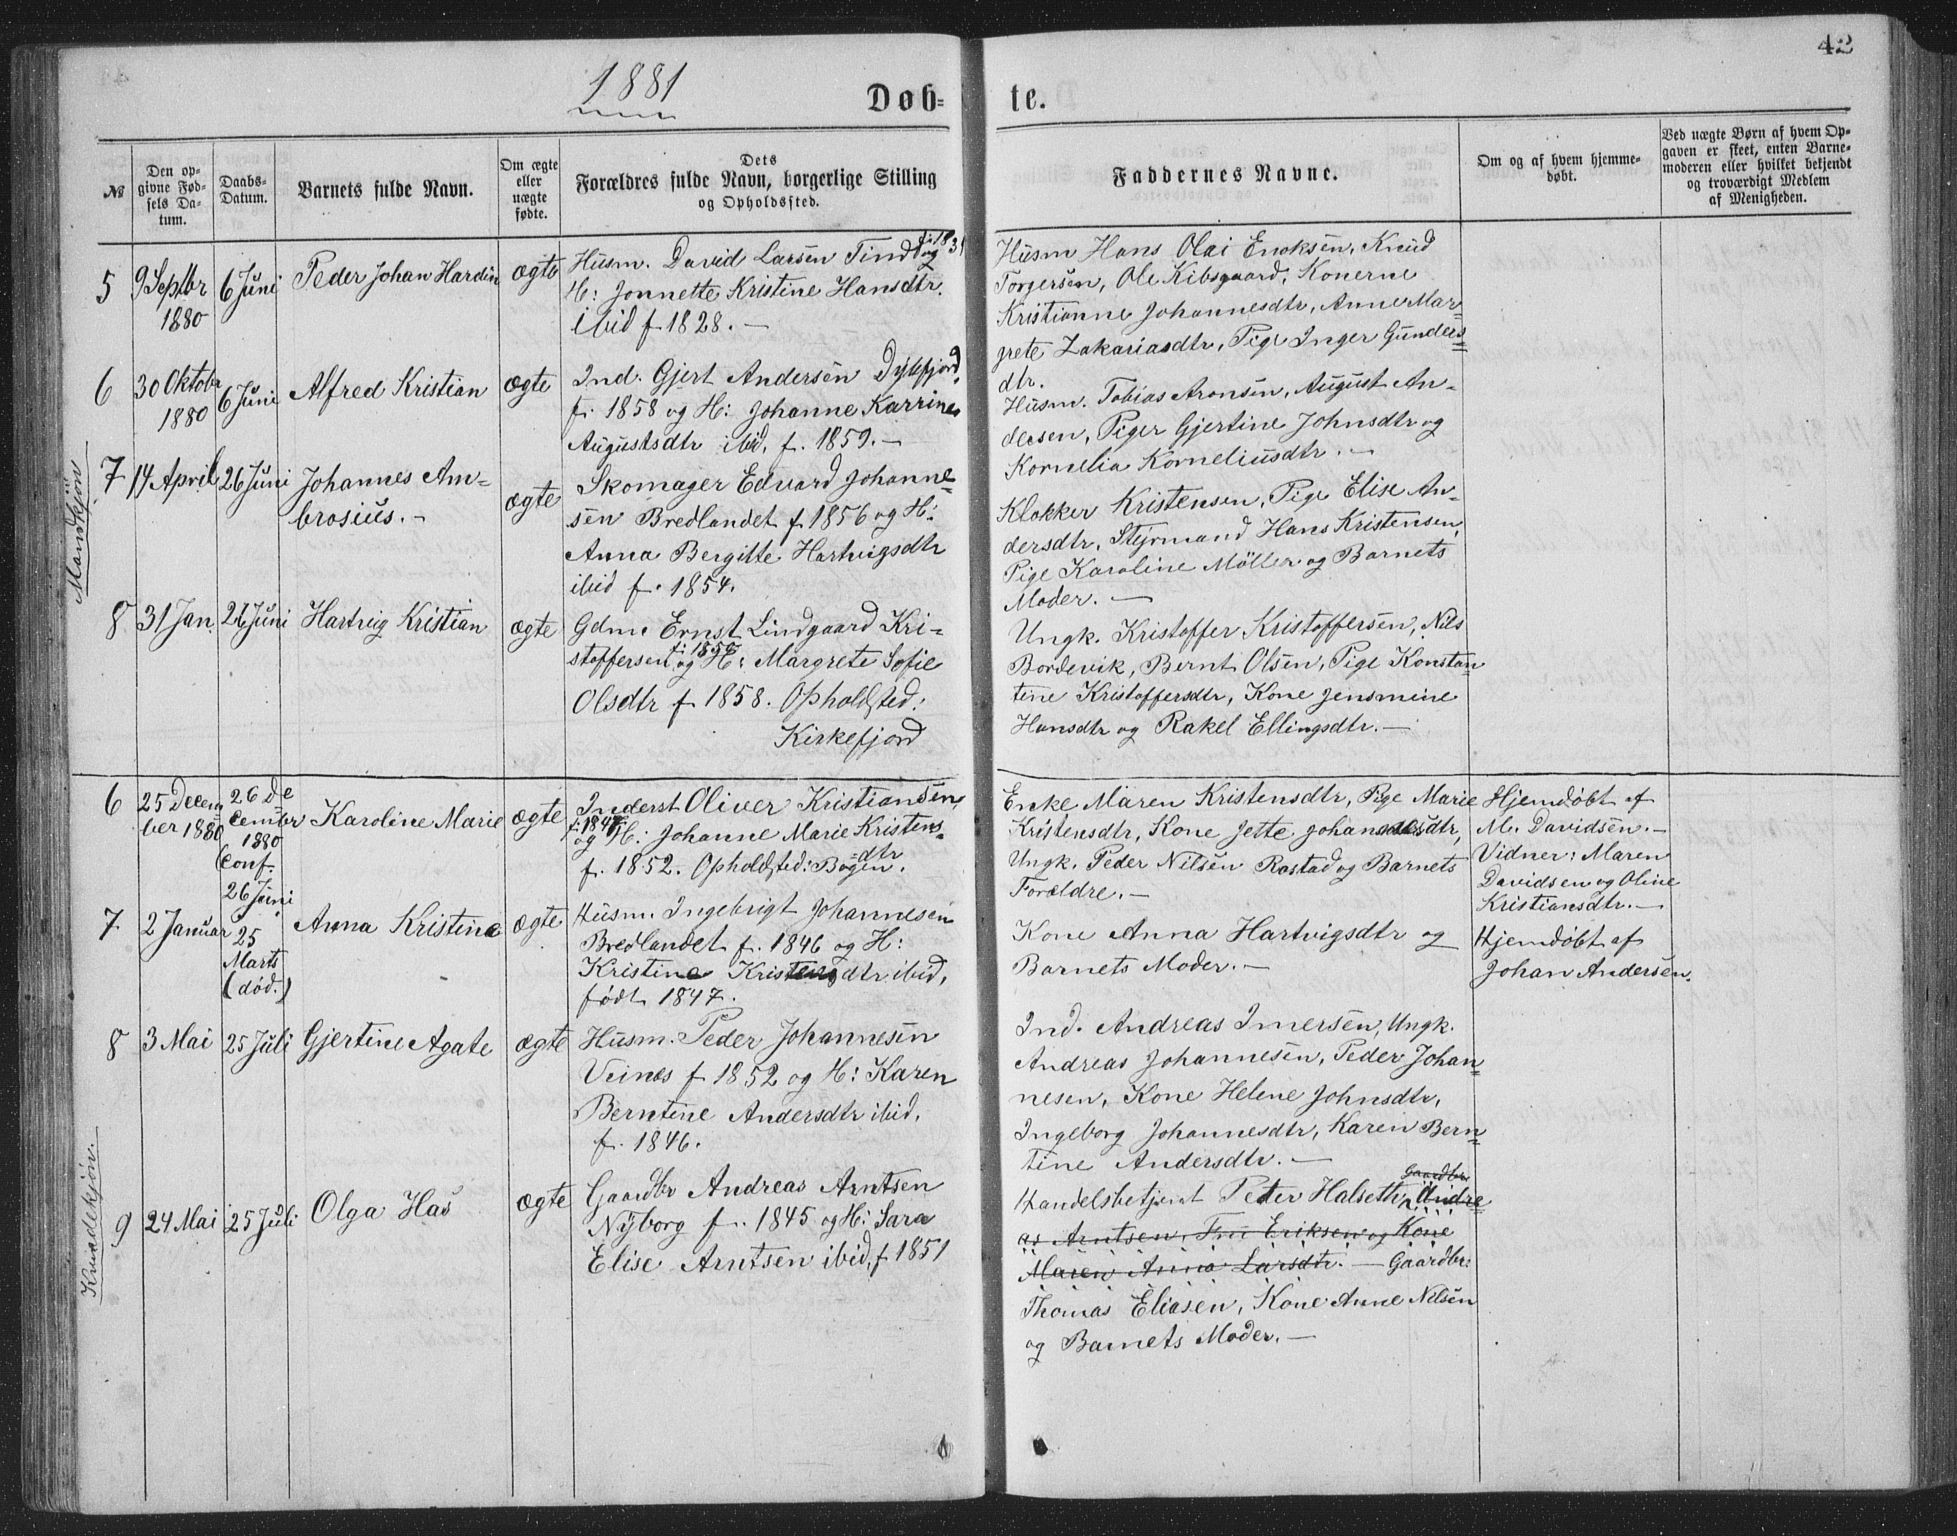 42
1881
Døb-
te.
№
Den op-
givne Fød-
sels Da-
tum.
Daabs-
Datum.
Barnets fulde Navn.
Om ægte
eller
uægte
fødte.
Dets
Forældres fulde Navn, borgerlige Stilling
og Opholdssted.
Faddernes Navne.
Om og af hvem hjemme-
døbt.
Ved uægte Børn af hvem Op-
gaven er skeet, enten Barne-
moderen eller hvilket bekjendt
og troværdigt Medlem
af Menigheden.
Mandkjön
5
9 Septbr
1880
6 Juni
Peder Johan Hardin
ægte
Husm. David Larsen Tind og
H: Jonnette Kristine Hansdtr.
ibid f 1828. —
Husm Hans Olai Enoksen, Knud
Torgersen, Ole Kibsgaard, Konerne
Kristianne Johannesdtr, Anne Mar=
grete Zakariasdtr, Pige Inger Gunders=
dtr.
6
30 Oktobr
1880
6 Juni
Alfred Kristian
ægte
Ind. Gjert Andersen Dybfjord
f. 1858 og H: Johanne Karrine
Augustsdtr ibid. f. 1859. —
Husm. Tobias Aronsen, August An-
dersen, Piger Gjertine Johnsdtr og
Kornelia Korneliusdtr. —
7
14 April
26 Juni
Johannes Am=
brosius. —
ægte
Skomager Edvard Johanne=
sen Bredlandet f 1856 og H:
Anna Bergitte Hartvigsdtr
ibid f. 1854.
Klokker Kristensen, Pige Elise An=
dersdtr, Styrmand Hans Kristensen,
Pige Karoline Möller og Barnets
Moder. —
8
31 Jan.
26 Juni
Hartvig Kristian
ægte
Gdm. Ernst Lindgaard Kri-
stoffersen og H: Margrete Sofie
Olsdtr f 1858. Opholdsted:
Kirkefjord
Ungk. Kristoffer Kristoffersen, Nils
Bordevik, Bernt Olsen, Pige Konstan
tine Kristoffersdtr, Kone Jensmine
Hansdtr og Rakel Ellingsdtr. —
Kvindekjön.
6
25 Decem
ber 1880
26 De
cember
1880
(Conf.
26 Juni
Karoline Marie
ægte
Inderst Oliver Kristiansen,
f. 1847
og H: Johanne Marie Kristens=
dtr
f. 1852. Opholdsted: Bogen.
Enke Maren Kristensdtr, Pige Marie
Kristensdtr, Kone Jette Johannesdtr,
Ungk. Peder Nilsen Rastad og Barnets
Forældre. —
Hjemdøbt af
M. Davidsen. —
Vidner: Maren
Davidsen og Oline
Kristiansdtr. —
7
2 Januar
25
Marts
(død.)
Anna Kristine
ægte
Husm. Ingebrigt Johannesen
Bredlandet f. 1846 og H:
Kristine Kristensdtr ibid,
født 1847.
Kone Anna Hartvigsdtr og
Barnets Moder. —
Hjemdøbt af
Johan Andersen.
8
3 Mai
25 Juli
Gjertine Agate
ægte
Husm. Peder Johannesen
Veines f 1852 og H: Karen
Berntine Andersdtr ibid.
f. 1846.
Ind. Andreas Imersen, Ungk.
Andreas Johannesen, Peder Johan=
nesen, Kone Helene Johnsdtr,
Ingeborg Johannesdtr, Karen Bern=
tine Andersdtr. —
9
24 Mai
25 Juli
Olga Has
ægte
Gaardbr Andreas Arntsen
Nyborg f. 1845 og H: Sara
Elise Arntsen ibid, f 1851
Gaardbr
Handelsbetjent Peter Halseth, Andre=
as Arntsen, Eriksen og Kone
Maren Anna Larsdtr. — Gaardbr:
Thomas Eliasen, Kone Anne Nilsen
og Barnets Moder. —